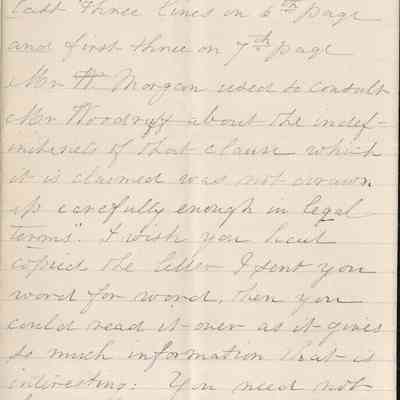 last three lines on 6th page
and first three on 7th page
Mr W Morgan used to consult
Mr Woodruff about the indef-
initenes of that clause which
it is claimed was not drawn
up carefully enough in legal
terms". I wish you had
copied the letter I sent you
word for word, then you
could read it over as it gives
so much information that is
interesting: You need not